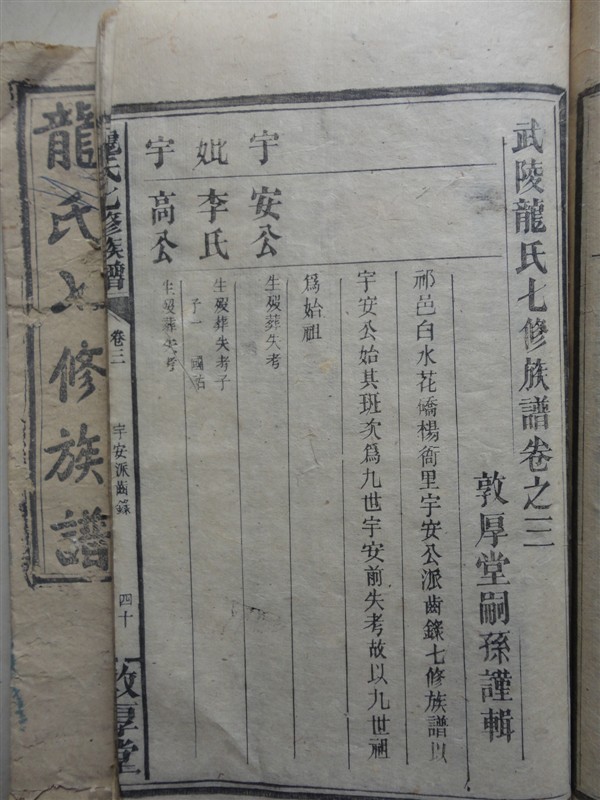 武陵龍氏七修族譜卷之三
敦厚堂嗣孫謹輯
祁邑白水花僑楊衙里宇安公派齒錄七修族譜以
宇安公始其班次爲九世宇安前失考故以九世祖
爲始祖
宇安公
生歿葬失考
妣李氏
生歿葬失考子
子一 國祐
宇高公
生歿葬失考
龍氏七修族譜
卷三
宇安派齒錄
四十
敦厚堂
龍氏七修族譜